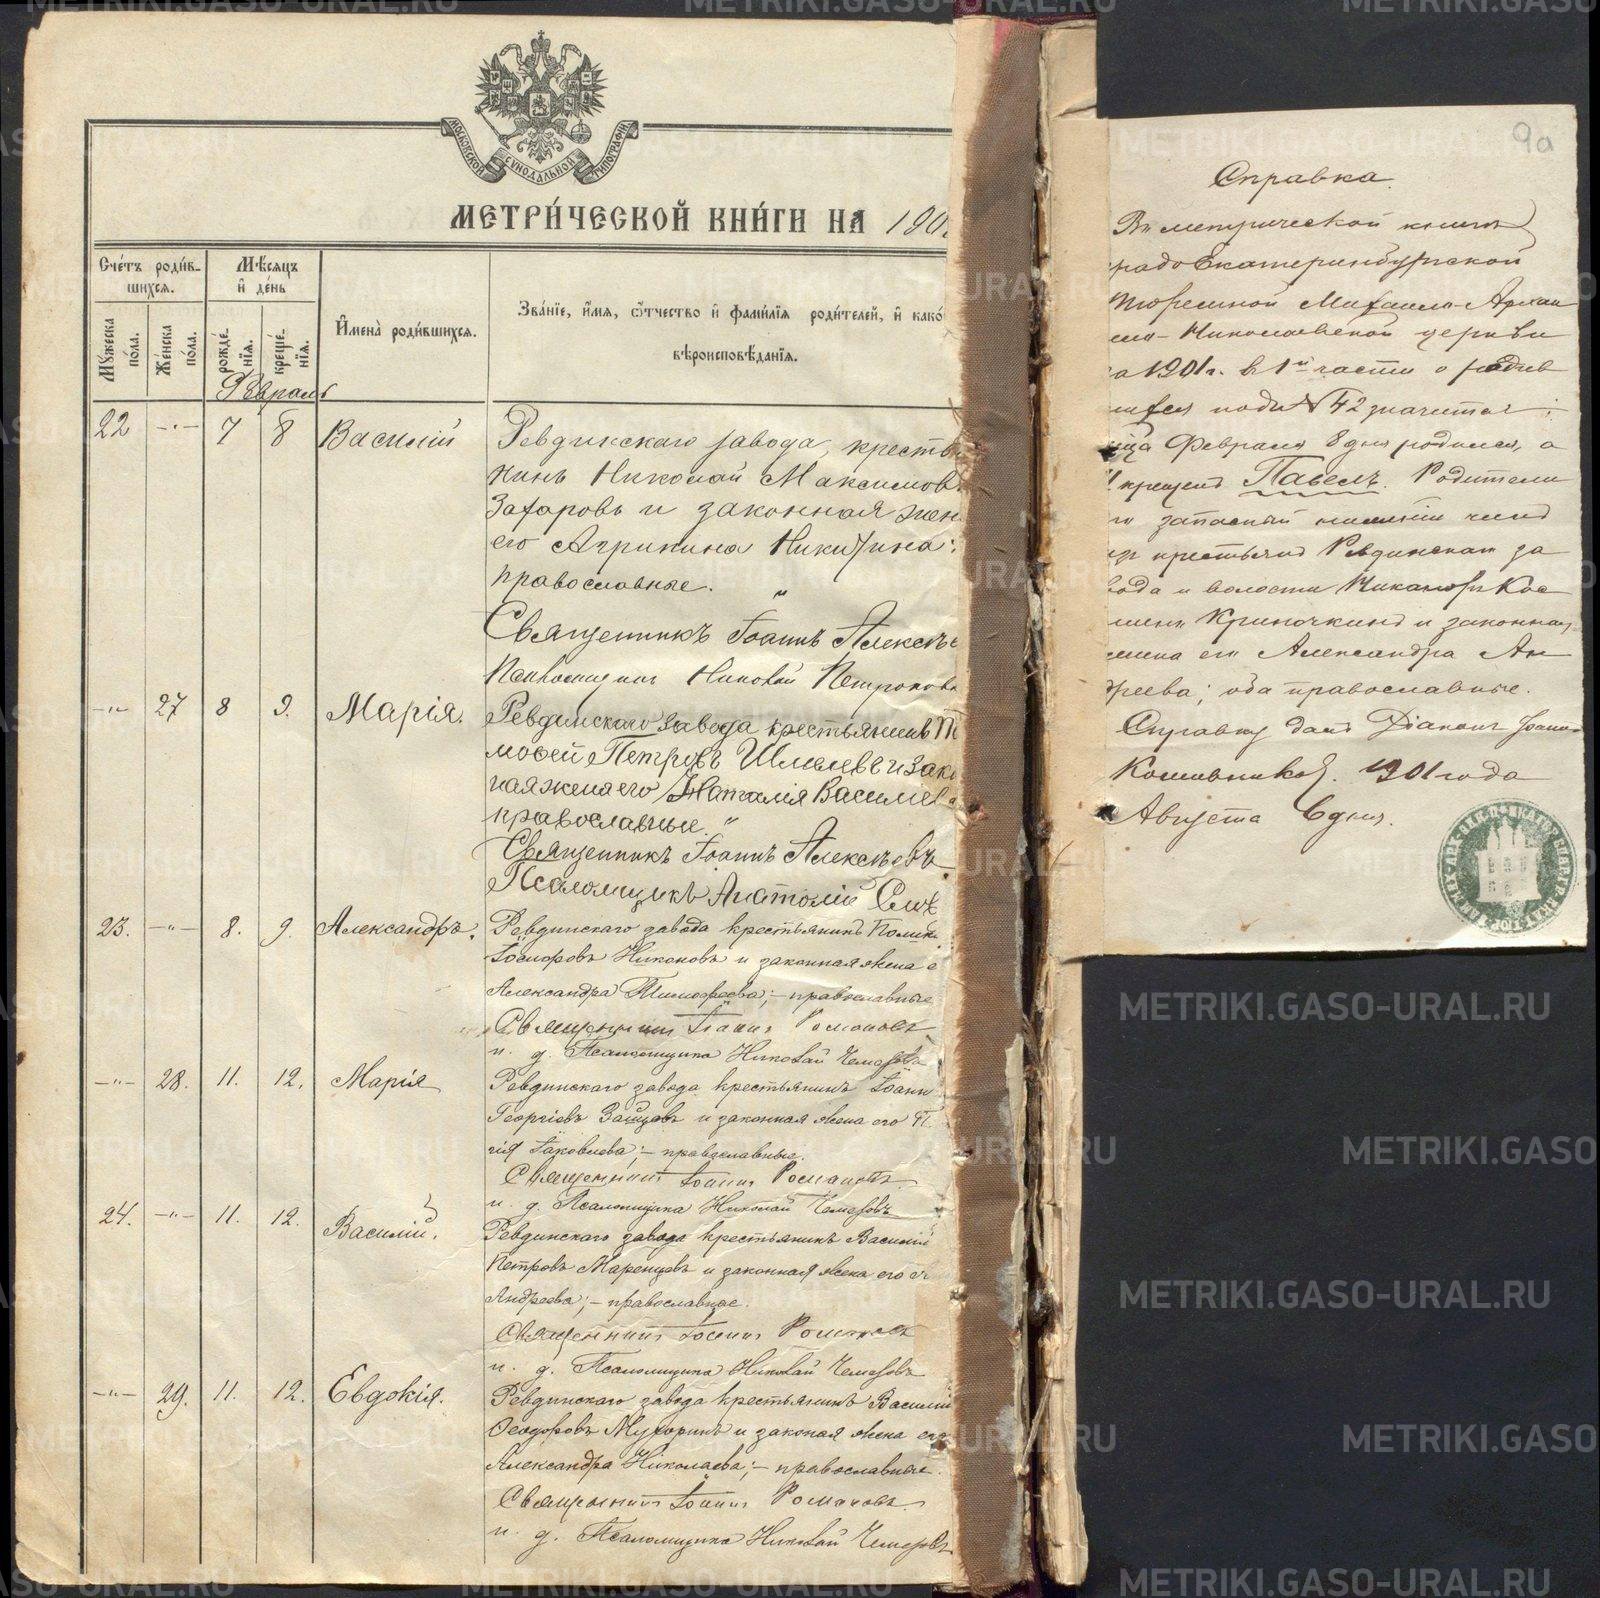 МОСКОВСКОЙ СѴНОДАЛЬНОЙ ТИПОГРАФІИ
МЕТРИ́ЧЕСКОЙ КНИ́ГИ НА 190
Сче́тъ роди́в-
шихся.
Мѣ́сяцъ
и҆ де́нь
Мꙋ́жеска
по́ла.
Же́нска
по́ла.
рожде́-
нїя.
креще́-
нїя.
И҆мена̀ роди́вшихся.
Зва́нїе, и҆́мя, ѻ҆́тчество и҆ фами́лїя роди́телей, и҆ како́
вѣроисповѣ́данїя.
Февраль
22 —"— 7 8 Василій
Ревдинскаго завода, крестья
нинъ Николай Максимовъ
Захаровъ и законная жен
его Агрипина Никитина:
православные.
Священникъ Іоаннъ Алексѣе
Псаломщикъ Николай
—"— 27 8 9. Марія.
Ревдинскаго завода крестьянинъ Ти
моѳей Петровъ Шмелевъ и зако
ная жена его Наталія Васильев
православные."
Священникъ Іоаннъ Алексѣевъ.
Псаломщикъ Анатолій
23. —"— 8. 9. Александръ.
Ревдинскаго завода крестьянинъ
Никоновъ и законная жена е
Александра Тимоѳеева; – православные
Священникъ Іоаннъ Романовъ
и. д. Псаломщика Николай
—"— 28. 11. 12. Марія
Ревдинскаго завода крестьянинъ Іоанн
Георгіевъ Зайцевъ и законная жена его
гія Іаковлева; – православные.
Священникъ Іоаннъ Романовъ
и. д. Псаломщика Николай
24. —"— 11. 12. Василій.
Ревдинскаго завода крестьянинъ Василій
Петровъ Маренцевъ и законная жена его
Андреева; – православные.
Священникъ Іоаннъ Романовъ
и. д. Псаломщика Николай
—"— 29. 11. 12. Евдокія.
Ревдинскаго завода крестьянинъ Василий
Ѳеодоровъ Мухоринъ и законая жена его
Александра Николаева; – православные.
Священникъ Іоаннъ Романовъ.
и. д. Псаломщика Николай
9а
Справка.
Въ метрической книгѣ
градо Екатеринбургской
тюремной Михаило-Архан
ело-Николаевской церкви
за 1901 г. въ 1й части о родив
шихся подъ № 42 значится:
яца Февраля 8 дня родился, а
крещенъ Павелъ. Родители
его запасный
изъ крестьянъ Ревдинскаго за
вода и волости Никаноръ Кос
минъ Криночкинъ и законная
жена его Александра Ан
дреева; оба православные.
Справку далъ Діаконъ Іоаннъ
1901 года
Августа 6 дня.
METRIKI.GASO-URAL.RU